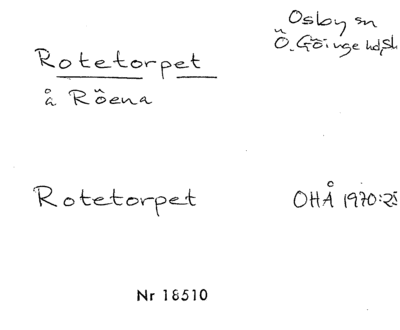 Rotetorpet
å Röena
Osby sn
Ö. Göinge hd, Sk
Rotetorpet
OHÅ 1970:25
Nr 18510